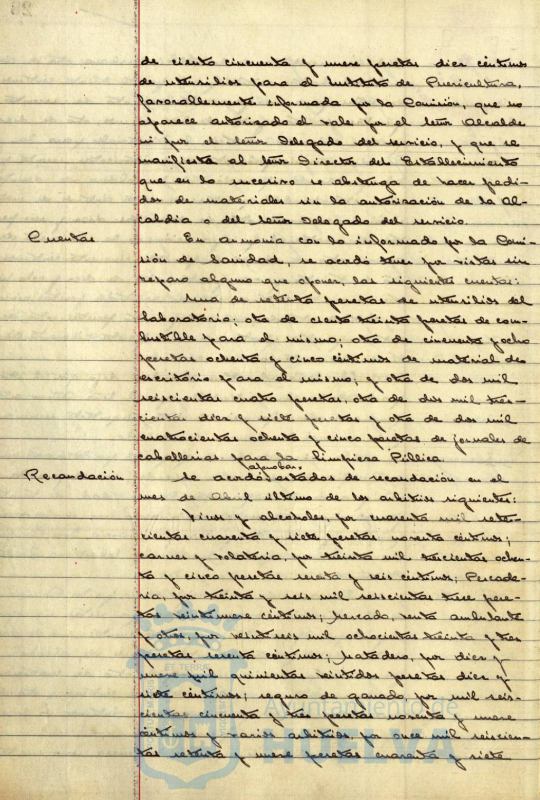 de ciento cincuenta y nueve pesetas diez céntimos
de utensilios para el Instituto de Puericultura,
favorablemente informada por la Comisión, que no
aparece autorizado el vale por el señor Alcalde
ni por el señor Delegado del servicio, y que se
manifieste al señor Director del Establecimiento
que en lo sucesivo se abstenga de hacer pedi-
dos de materiales sin la autorización de la Al-
caldía o del señor Delegado del servicio.
Cuentas En armonía con lo informado por la Comi-
sión de Sanidad, se acordó tener por vistas sin
reparo alguno que oponer, las siguientes cuentas:
Una de setenta pesetas de utensilios del
laboratorio; otra de ciento treinta pesetas de com-
bustible para el mismo; otra de cincuenta y ocho
pesetas ochenta y cinco céntimos de material de
escritorio para el mismo; y otra de dos mil
seiscientas cuatro pesetas, otra de dos mil tres-
cientas diez y siete pesetas y otra de dos mil
cuatrocientas ochenta y cinco pesetas de jornales de
caballerías para la limpieza Pública.
aprobar
Recaudación Se acordó estados de recaudación en el
mes de Abril último de los arbitrios siguientes:
Vinos y alcoholes, por cuarenta mil sete-
cientas cuarenta y siete pesetas noventa céntimos;
carnes y volatería, por treinta mil trescientas ochen-
ta y cinco pesetas sesenta y seis céntimos; Pescade-
ría, por treinta y seis mil seiscientas trece pese-
tas veintinueve céntimos; Mercado, venta ambulante
y otros, por veintiseis mil ochocientas treinta y tres
pesetas céntimos; Matadero, por diez y
nueve mil quinientas veintidos pesetas diez y
siete céntimos; seguro de ganado, por mil seis-
cientas cincuenta y tres pesetas noventa y nueve
céntimos y varios arbitrios, por once mil seiscien-
tas setenta y nueve pesetas cuarenta y siete
Ayuntamiento de
HUELVA